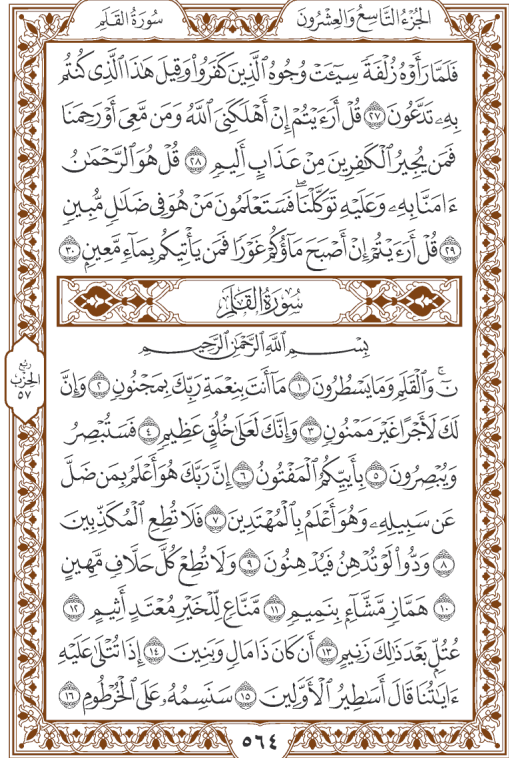 الجُزْءُ التَّاسِعُ وَالعِشْرُونَ
سُورَةُ القَلَمِ
فَلَمَّا رَأَوْهُ زُلْفَةً سِيٓـَٔتْ وُجُوهُ ٱلَّذِينَ كَفَرُواْ وَقِيلَ هَٰذَا ٱلَّذِي كُنتُم
بِهِۦ تَدَّعُونَ ٢٧ قُلْ أَرَءَيْتُمْ إِنْ أَهْلَكَنِيَ ٱللَّهُ وَمَن مَّعِيَ أَوْ رَحِمَنَا
فَمَن يُجِيرُ ٱلْكَٰفِرِينَ مِنْ عَذَابٍ أَلِيمٖ ٢٨ قُلْ هُوَ ٱلرَّحْمَٰنُ
ءَامَنَّا بِهِۦ وَعَلَيْهِ تَوَكَّلْنَاۖ فَسَتَعْلَمُونَ مَنْ هُوَ فِي ضَلَٰلٖ مُّبِينٖ
٢٩ قُلْ أَرَءَيْتُمْ إِنْ أَصْبَحَ مَآؤُكُمْ غَوْرٗا فَمَن يَأْتِيكُم بِمَآءٖ مَّعِينِۭ ٣٠
سُورَةُ القَلَمِ
بِسْمِ ٱللَّهِ ٱلرَّحْمَٰنِ ٱلرَّحِيمِ
نٓۚ وَٱلْقَلَمِ وَمَا يَسْطُرُونَ ١ مَآ أَنتَ بِنِعْمَةِ رَبِّكَ بِمَجْنُونٖ ٢ وَإِنَّ
لَكَ لَأَجْرًا غَيْرَ مَمْنُونٖ ٣ وَإِنَّكَ لَعَلَىٰ خُلُقٍ عَظِيمٖ ٤ فَسَتُبْصِرُ
وَيُبْصِرُونَ ٥ بِأَييِّكُمُ ٱلْمَفْتُونُ ٦ إِنَّ رَبَّكَ هُوَ أَعْلَمُ بِمَن ضَلَّ
عَن سَبِيلِهِۦ وَهُوَ أَعْلَمُ بِٱلْمُهْتَدِينَ ٧ فَلَا تُطِعِ ٱلْمُكَذِّبِينَ
٨ وَدُّواْ لَوْ تُدْهِنُ فَيُدْهِنُونَ ٩ وَلَا تُطِعْ كُلَّ حَلَّافٖ مَّهِينٍ
١٠ هَمَّازٖ مَّشَّآءِۭ بِنَمِيمٖ ١١ مَّنَّاعٖ لِّلْخَيْرِ مُعْتَدٍ أَثِيمٍ ١٢
عُتُلِّۭ بَعْدَ ذَٰلِكَ زَنِيمٍ ١٣ أَن كَانَ ذَا مَالٖ وَبَنِينَ ١٤ إِذَا تُتْلَىٰ عَلَيْهِ
ءَايَٰتُنَا قَالَ أَسَٰطِيرُ ٱلْأَوَّلِينَ ١٥ سَنَسِمُهُۥ عَلَى ٱلْخُرْطُومِ ١٦
رُبْع
الحِزْبِ
٥٧
٥٦٤